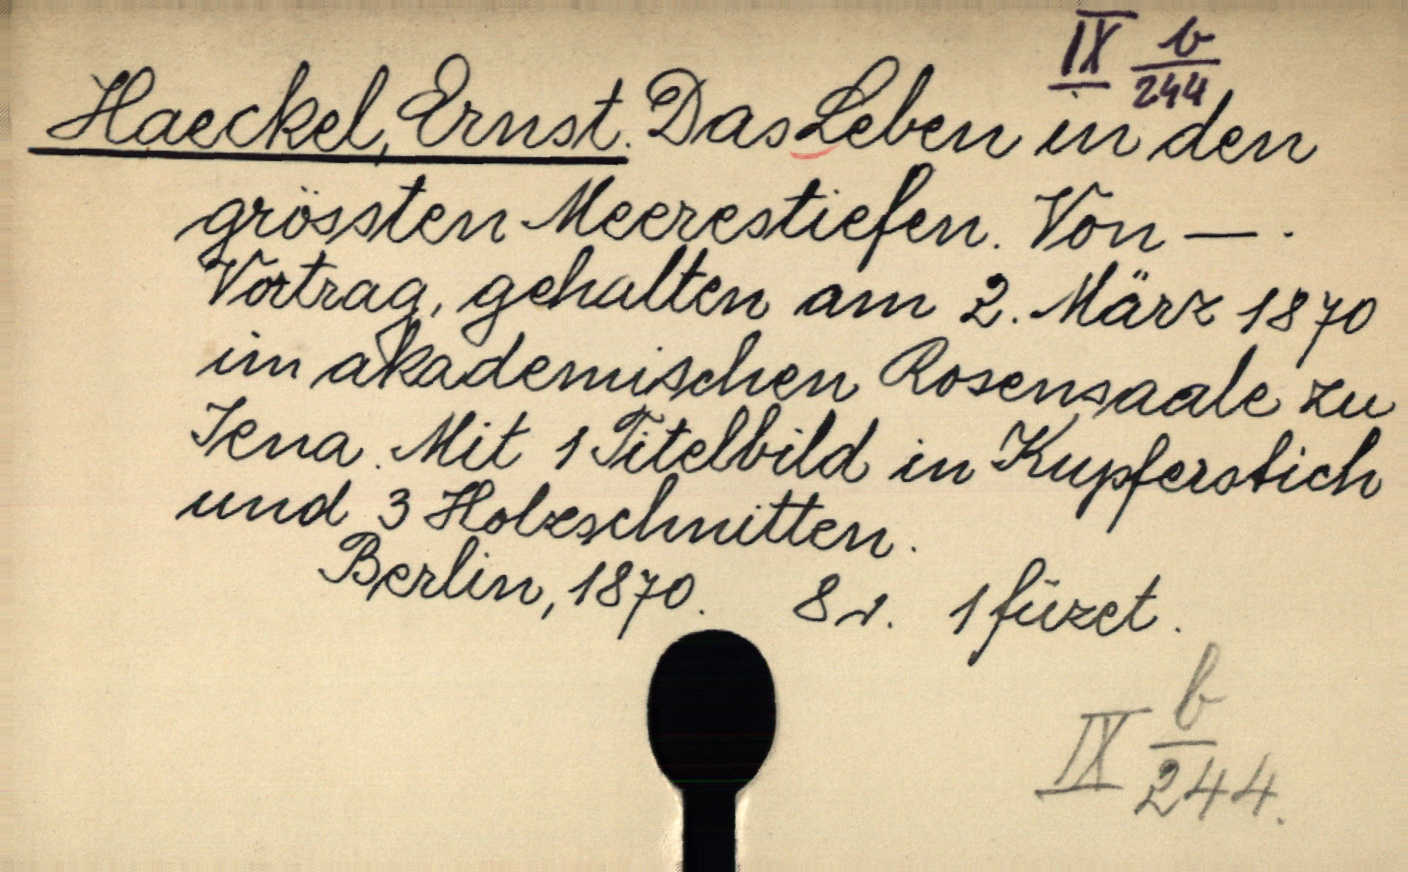 IX b/244
Haeckel, Ernst. Das Leben in den
grössten Meerestiefen. Von — .
Vortrag, gehalten am 2. März 1870
im akademischen Rosensaale zu
Jena. Mit 1 Titelbild in Kupferstich
und 3 Holzschnitten.
Berlin, 1870. 8r. 1 füzet.
IX b/244.